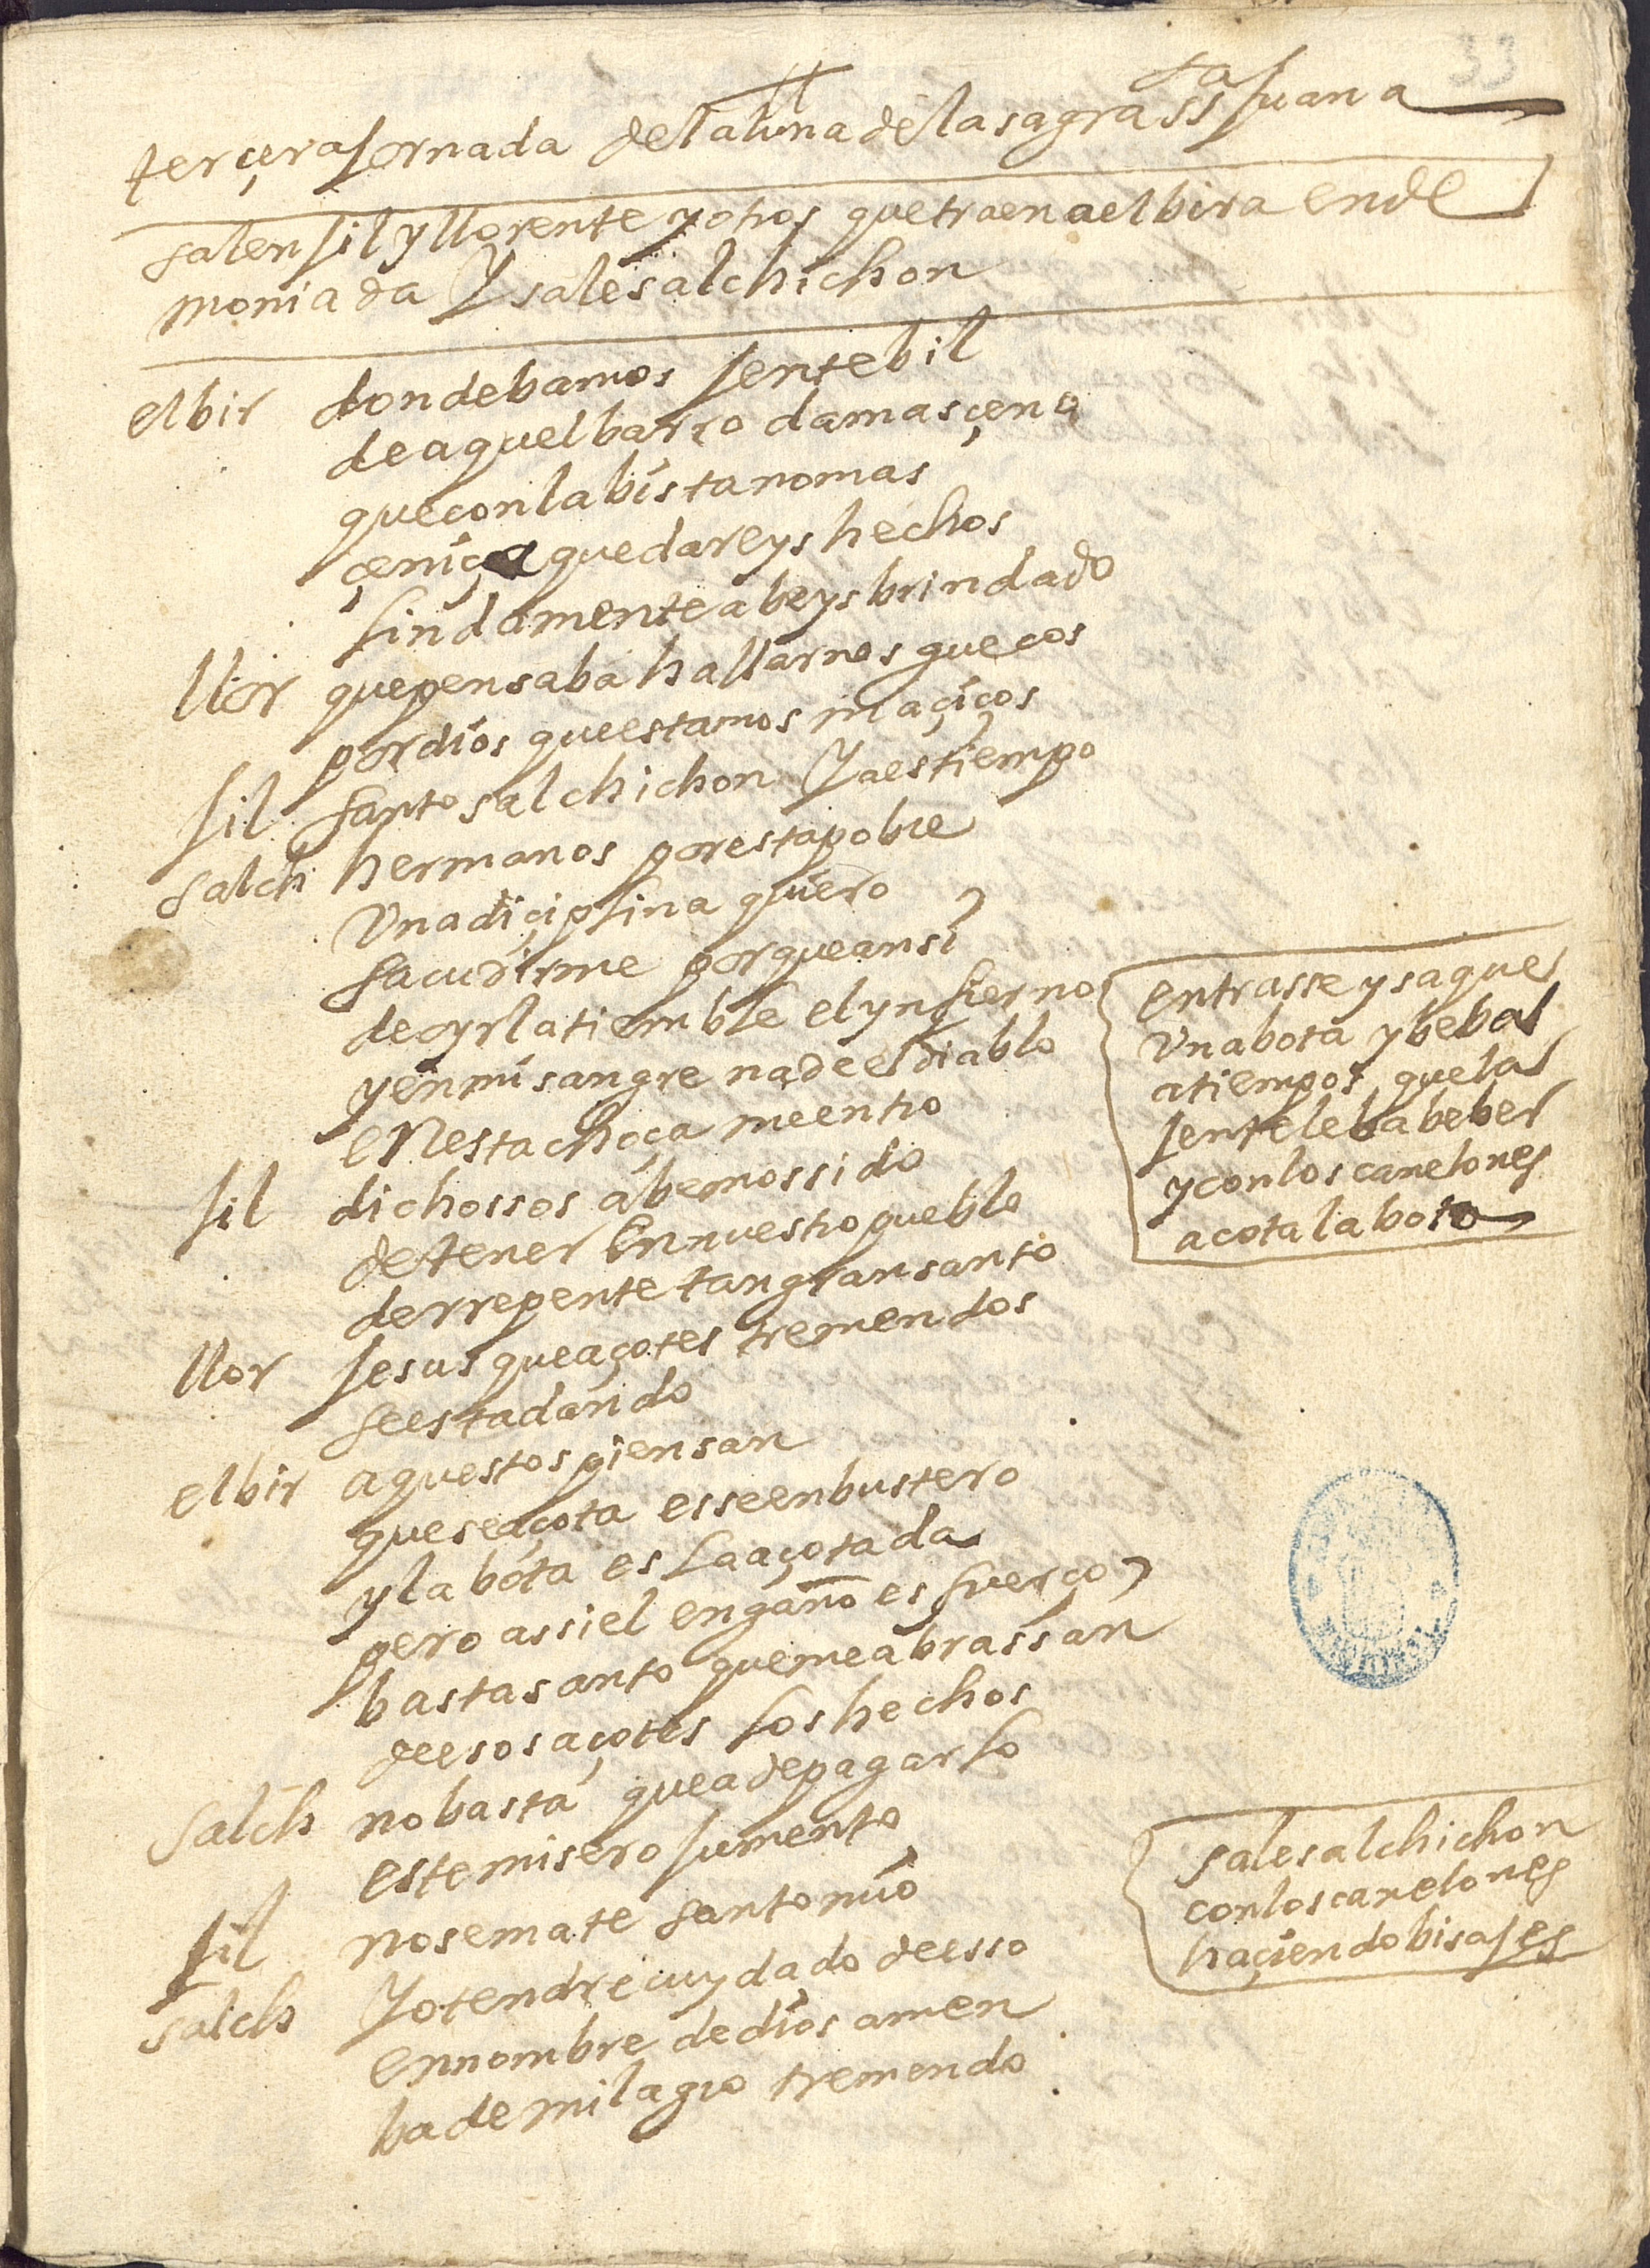 33
terçera Jornada de la luna de la sagra ssta Juana
salen Jil y llorente y otros que traen a elbira ende
moniada Y sale salchichon
elbir donde bamos Jente bil
de aquel barro damasçena
que con la bista no mas
çeniça quedareys hechos
lindamente abeys brindado
llor que pensaba hallarnos guecos
por dios que estamos maçiços
Jil santo salchichon Ya es tiempo
salch hermanos por esta pobre
Una diçiplina quiero
sacudirme porque ansi
de oyrla tiemble el ynfierno
y en mi sangre nade el diablo
en esta choça me entro
entrasse y saque
Una bota y beba
a tiempos que la
Jente le ba beber
y con los canelones
acota la bota
Jil dichossos abemos sido
de tener En nuestro pueblo
derrepente tan gran santo
llor Jesus que açotes tremendos
se esta dando
elbir aquestos piensan
que se açota esse enbustero
y la bota es la açotada
pero assi el engaño es fuerço
basta santo que me abrassan
de esos açotes los hechos
salch no basta que a de pagarlo
este misero Jumento
sale salchichon
con los canelones
haçiendo bisajes
Jil no se mate santo mio
salch Yo tendre cuydado de esso
en nombre de dios amen
ba de milagro tremendo